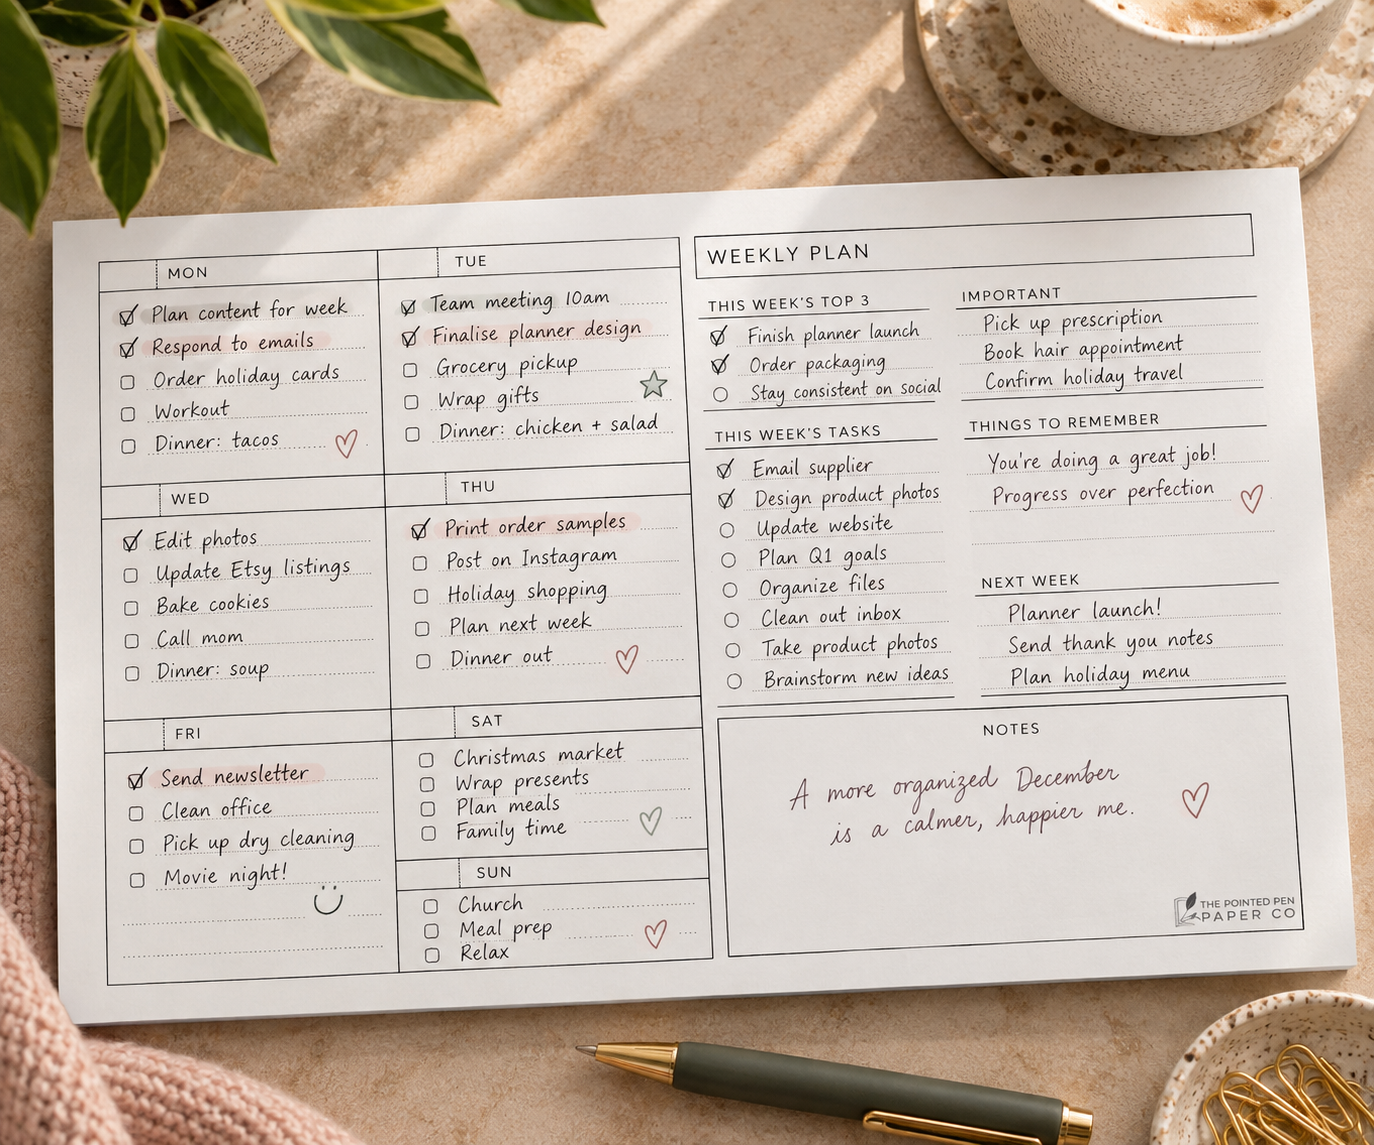 MON
Plan content for week
Respond to emails
Order holiday cards
Workout
Dinner: tacos
TUE
Team meeting 10am
Finalise planner design
Grocery pickup
Wrap gifts
Dinner: chicken + salad
WED
Edit photos
Update Etsy listings
Bake cookies
Call mom
Dinner: soup
THU
Print order samples
Post on Instagram
Holiday shopping
Plan next week
Dinner out
FRI
Send newsletter
Clean office
Pick up dry cleaning
Movie night!
SAT
Christmas market
Wrap presents
Plan meals
Family time
SUN
Church
Meal prep
Relax
WEEKLY PLAN
THIS WEEK'S TOP 3
Finish planner launch
Order packaging
Stay consistent on social
THIS WEEK'S TASKS
Email supplier
Design product photos
Update website
Plan Q1 goals
Organize files
Clean out inbox
Take product photos
Brainstorm new ideas
IMPORTANT
Pick up prescription
Book hair appointment
Confirm holiday travel
THINGS TO REMEMBER
You're doing a great job!
Progress over perfection
NEXT WEEK
Planner launch!
Send thank you notes
Plan holiday menu
NOTES
A more organized December
is a calmer, happier me.
THE POINTED PEN
PAPER CO